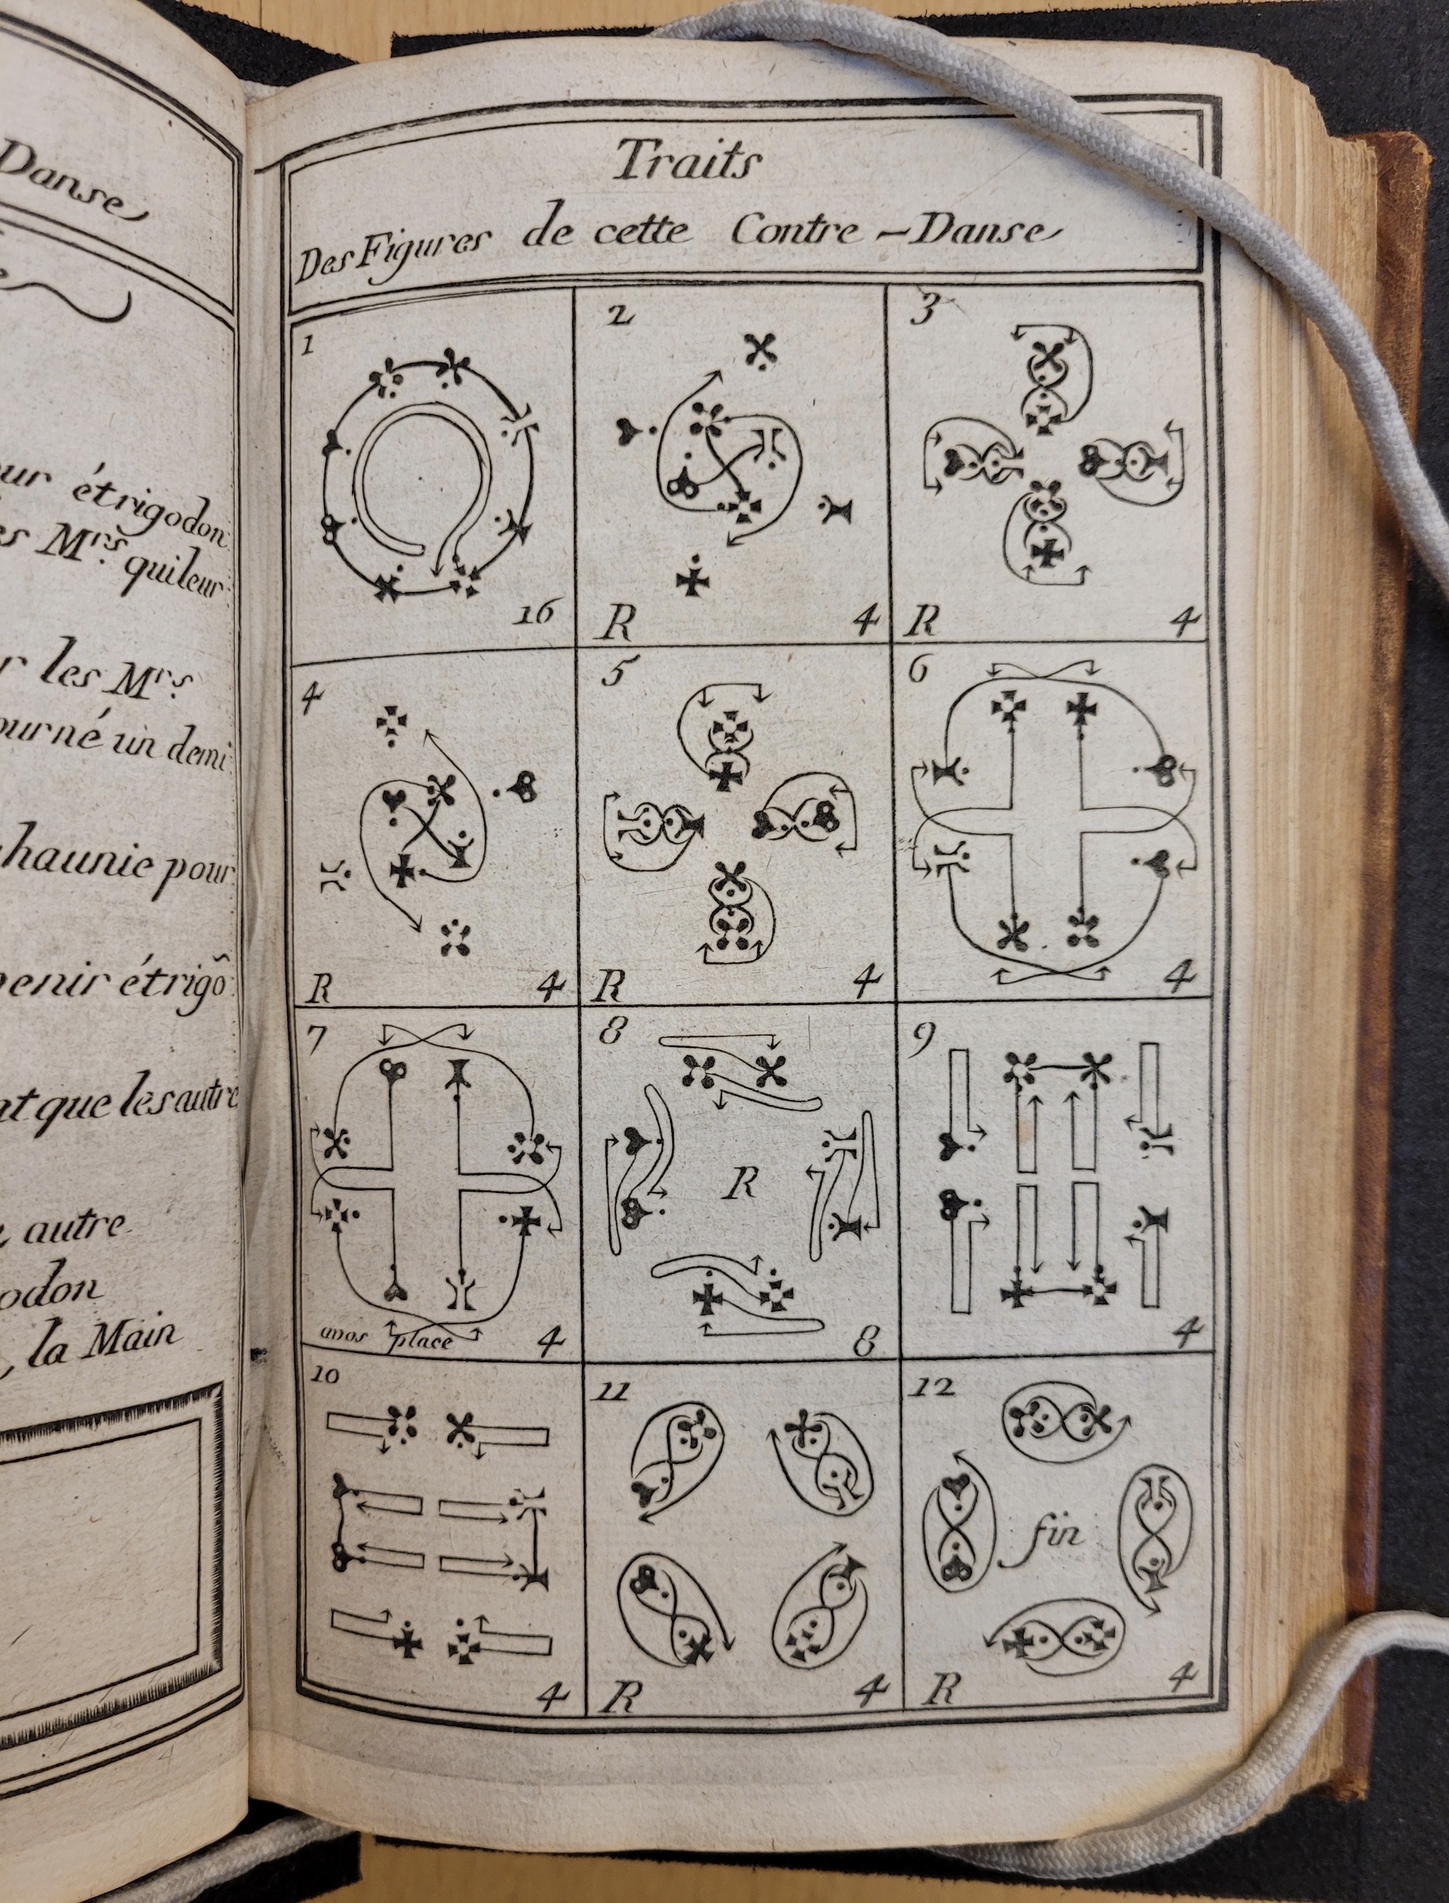 Danse
ur étrigodon
es M.rs qui leur
r les M.rs
ourné un demi
chaunie pour
venir étrigô
at que les autre
autre
odon
, la Main
Traits
Des Figures de cette Contre-Danse
1
16
2
R 4
3
R 4
4
R 4
5
R 4
6
4
7
avos place 4
8
R
8
9
4
10
4
11
R 4
12
fin
R 4